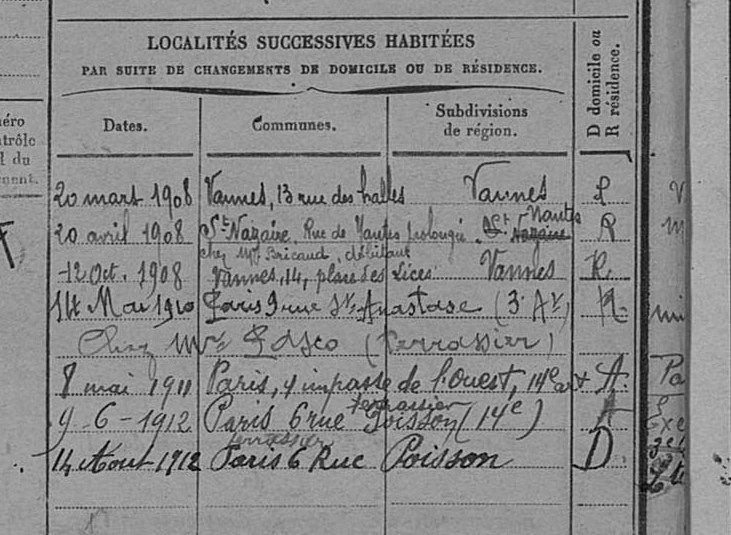 LOCALITÉS SUCCESSIVES HABITÉES
PAR SUITE DE CHANGEMENTS DE DOMICILE OU DE RÉSIDENCE.
Dates. Communes. Subdivisions de région. D domicile ou R résidence.
20 mars 1908 Vannes, 13 rue des halles Vannes R
20 avril 1908 St Nazaire, Rue de Nantes prolongée. Nantes R
chez Mr Péricaud, débitant
12 Oct. 1908 Vannes, 14, place des Lices Vannes R.
14 Mai 1910 Paris 9 rue Ste Anastase (3e Ar) R.
Chez Mr (Terrassier)
8 mai 1911 Paris, 4 impasse de l'Ouest, 14e
terrassier
9-6-1912 Paris 6 rue Poisson (14e)
terrassier
14 Aout 1912 Paris 6 Rue Poisson D